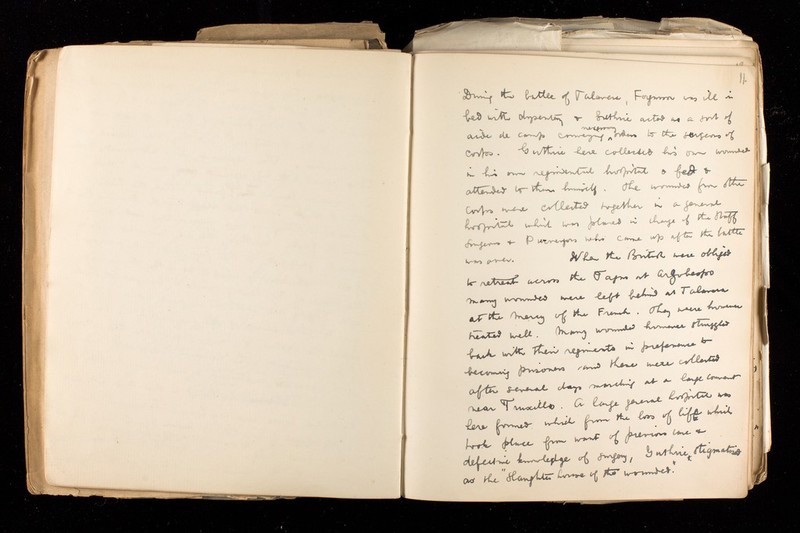 11
During the battle of Talavera, Ferguson was ill in
bed with dysentery & Guthrie acted as a sort of
aide de camp conveying necessary orders to the surgeons of
corps. Guthrie here collected his own wounded
in his own regimental hospital & fed &
attended to them himself. The wounded from other
corps were collected together in a general
hospital which was placed in charge of the Staff
Surgeons & Purveyors who came up after the battle
was over. When the British were obliged
to retreat across the Tagus at Arzobispo
many wounded were left behind at Talavera
at the mercy of the French. They were however
treated well. Many wounded however struggled
back with their regiments in preference to
becoming prisoners and these were collected
after several days marching at a large convent
near Truxillo. A large general hospital was
here formed which from the loss of life which
took place from want of previous care &
defective knowledge of surgery, Guthrie stigmatised
as the "Slaughter house of the wounded."